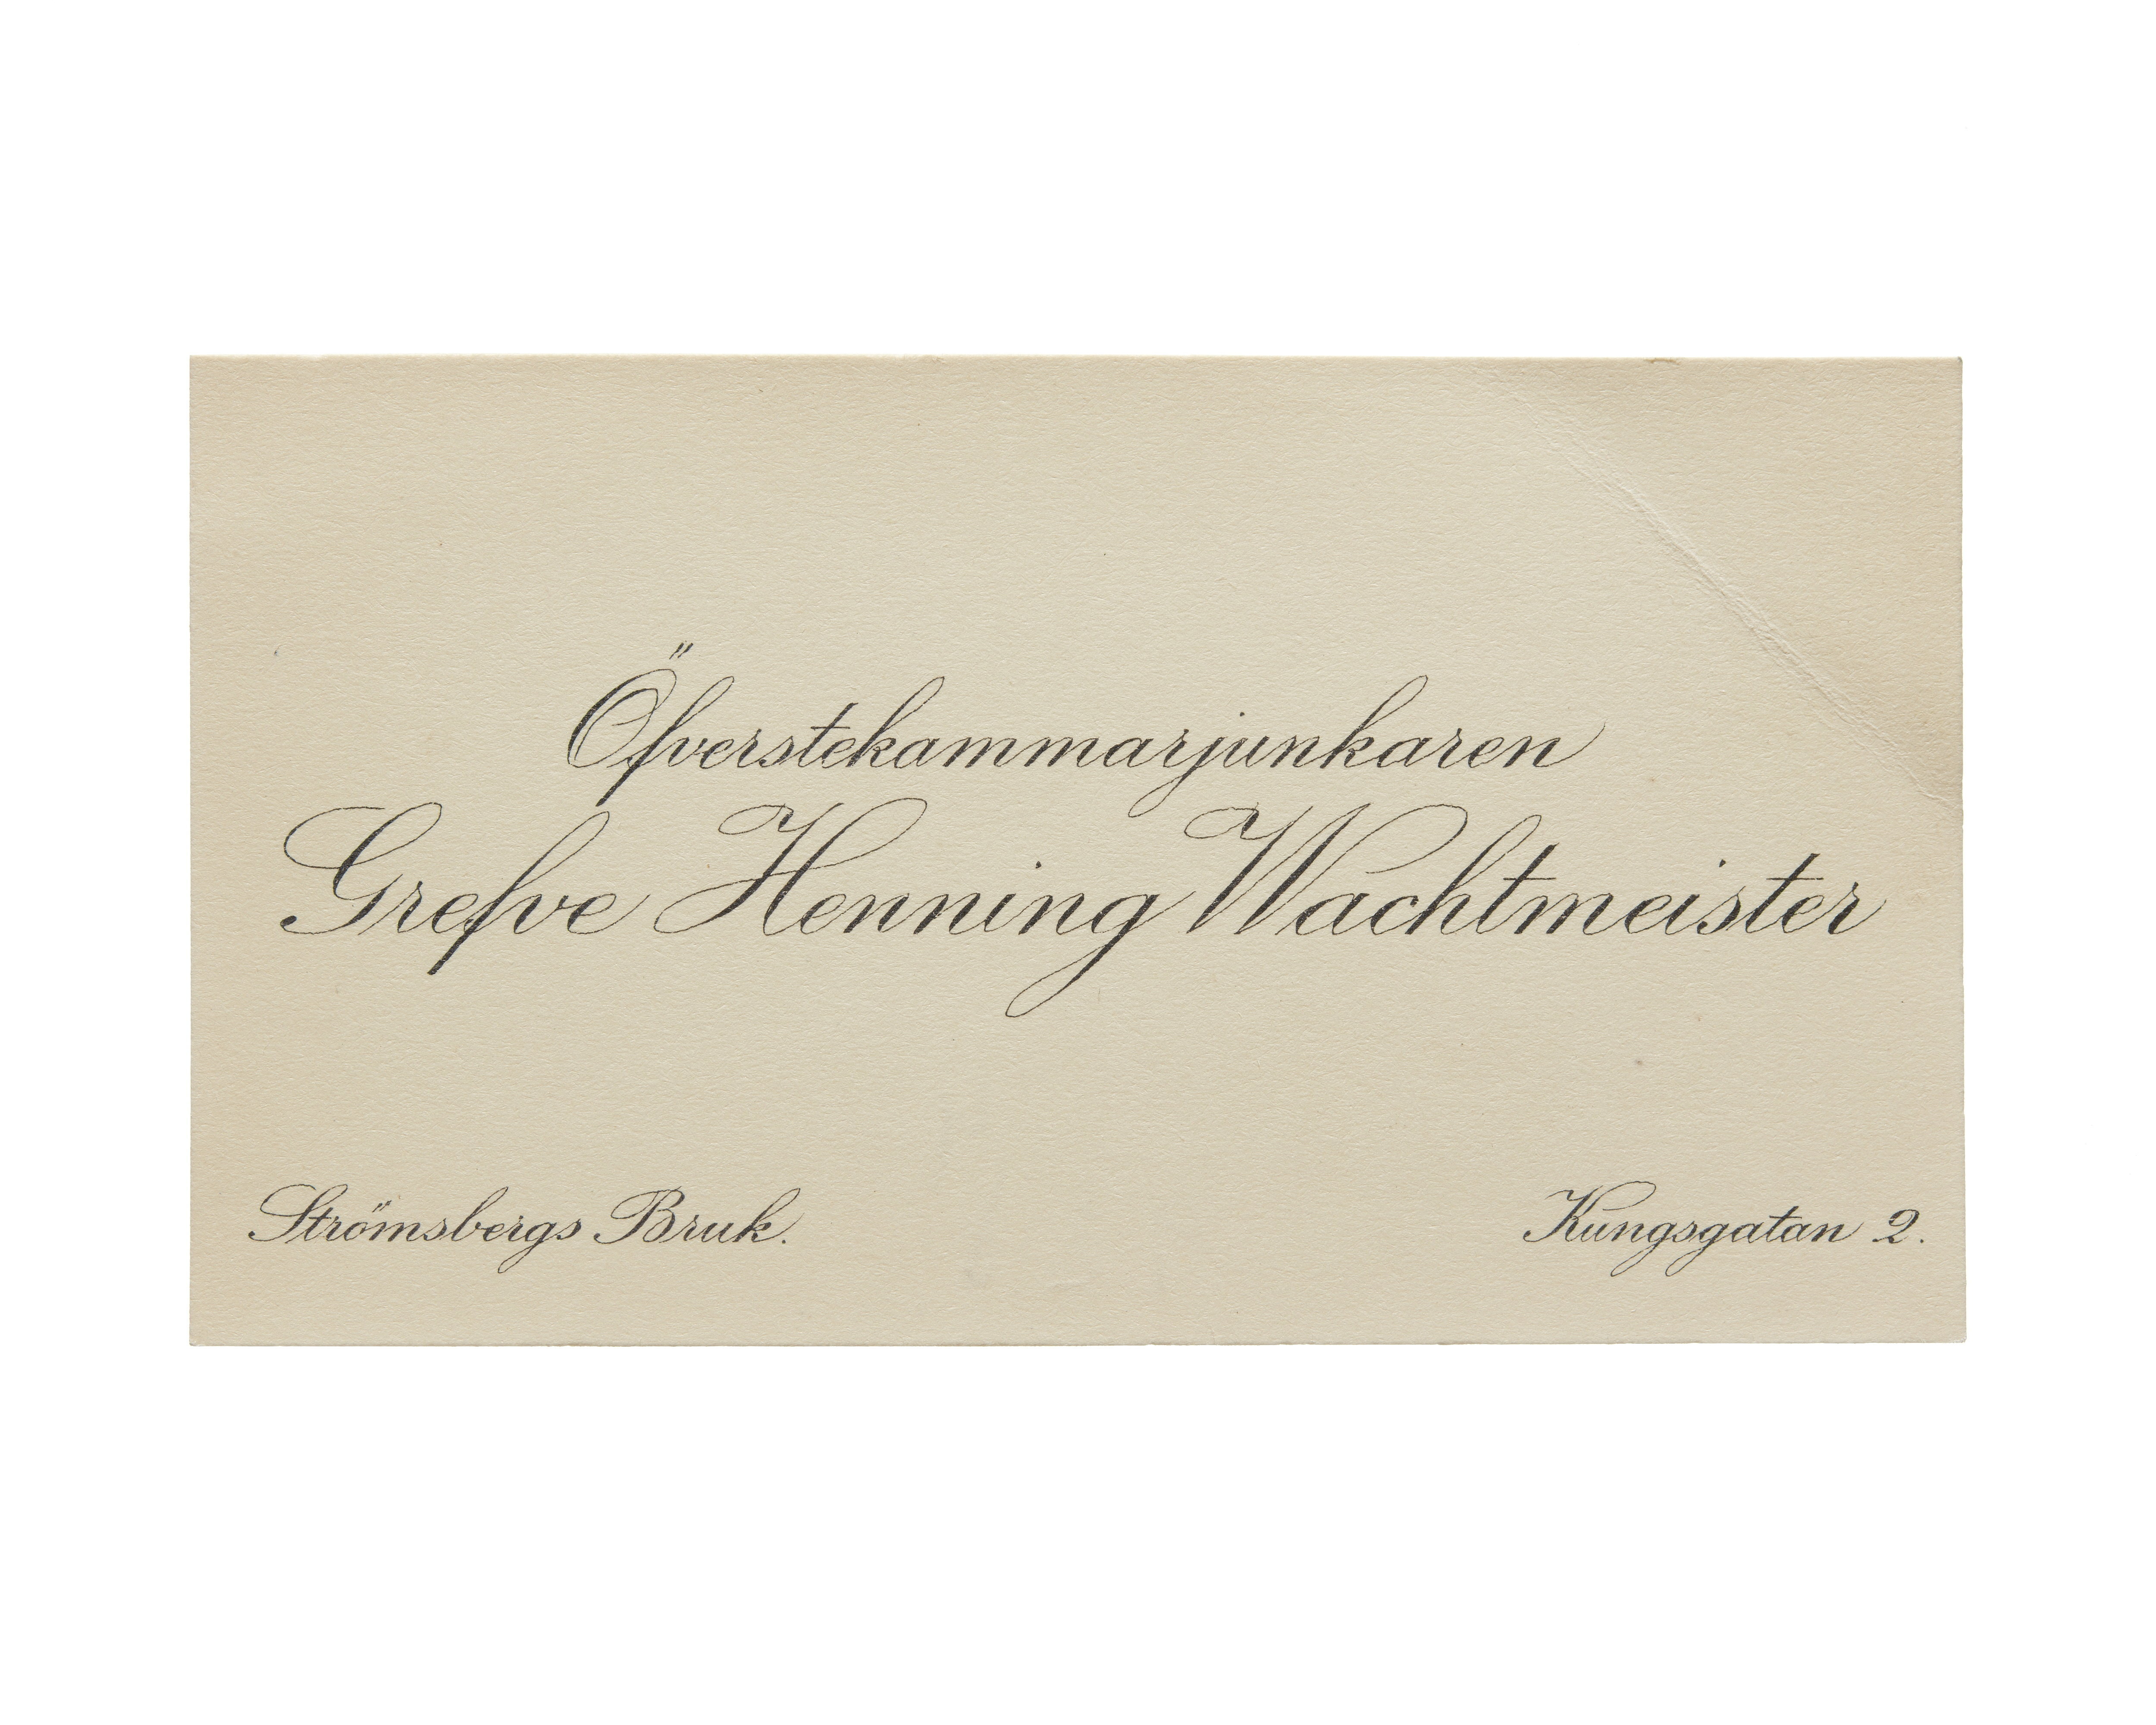 Öfverstekammarjunkaren
Grefve Henning Wachtmeister
Strömsbergs Bruk.
Kungsgatan 2.